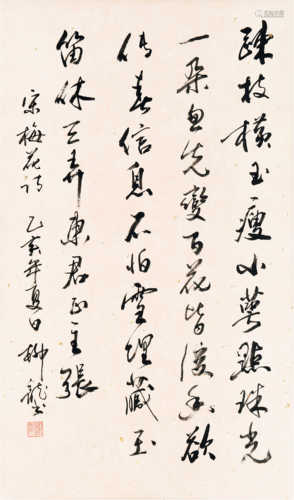 疎枝横玉瘦小萼點珠光
一朵忽先變百花皆後香欲
傳春信息不怕雪埋藏玉
笛休三弄東君正主張
宋梅花詩 乙亥年夏日 柳